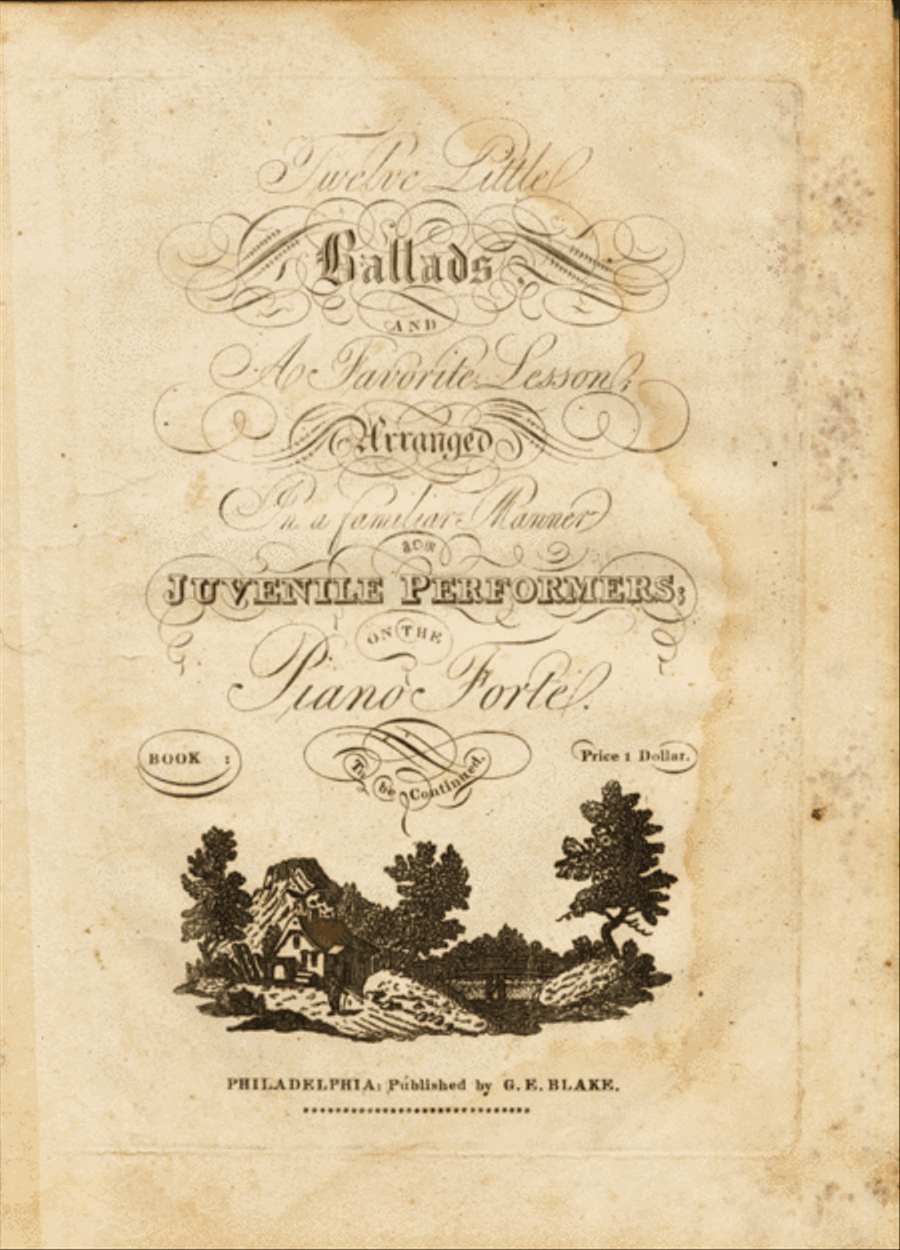 Twelve Little
Ballads
AND
A Favorite Lesson;
Arranged
In a familiar Manner
FOR
JUVENILE PERFORMERS;
ON THE
Piano Forte.
BOOK :
To be Continued.
Price 1 Dollar.
PHILADELPHIA: Published by G. E. BLAKE.